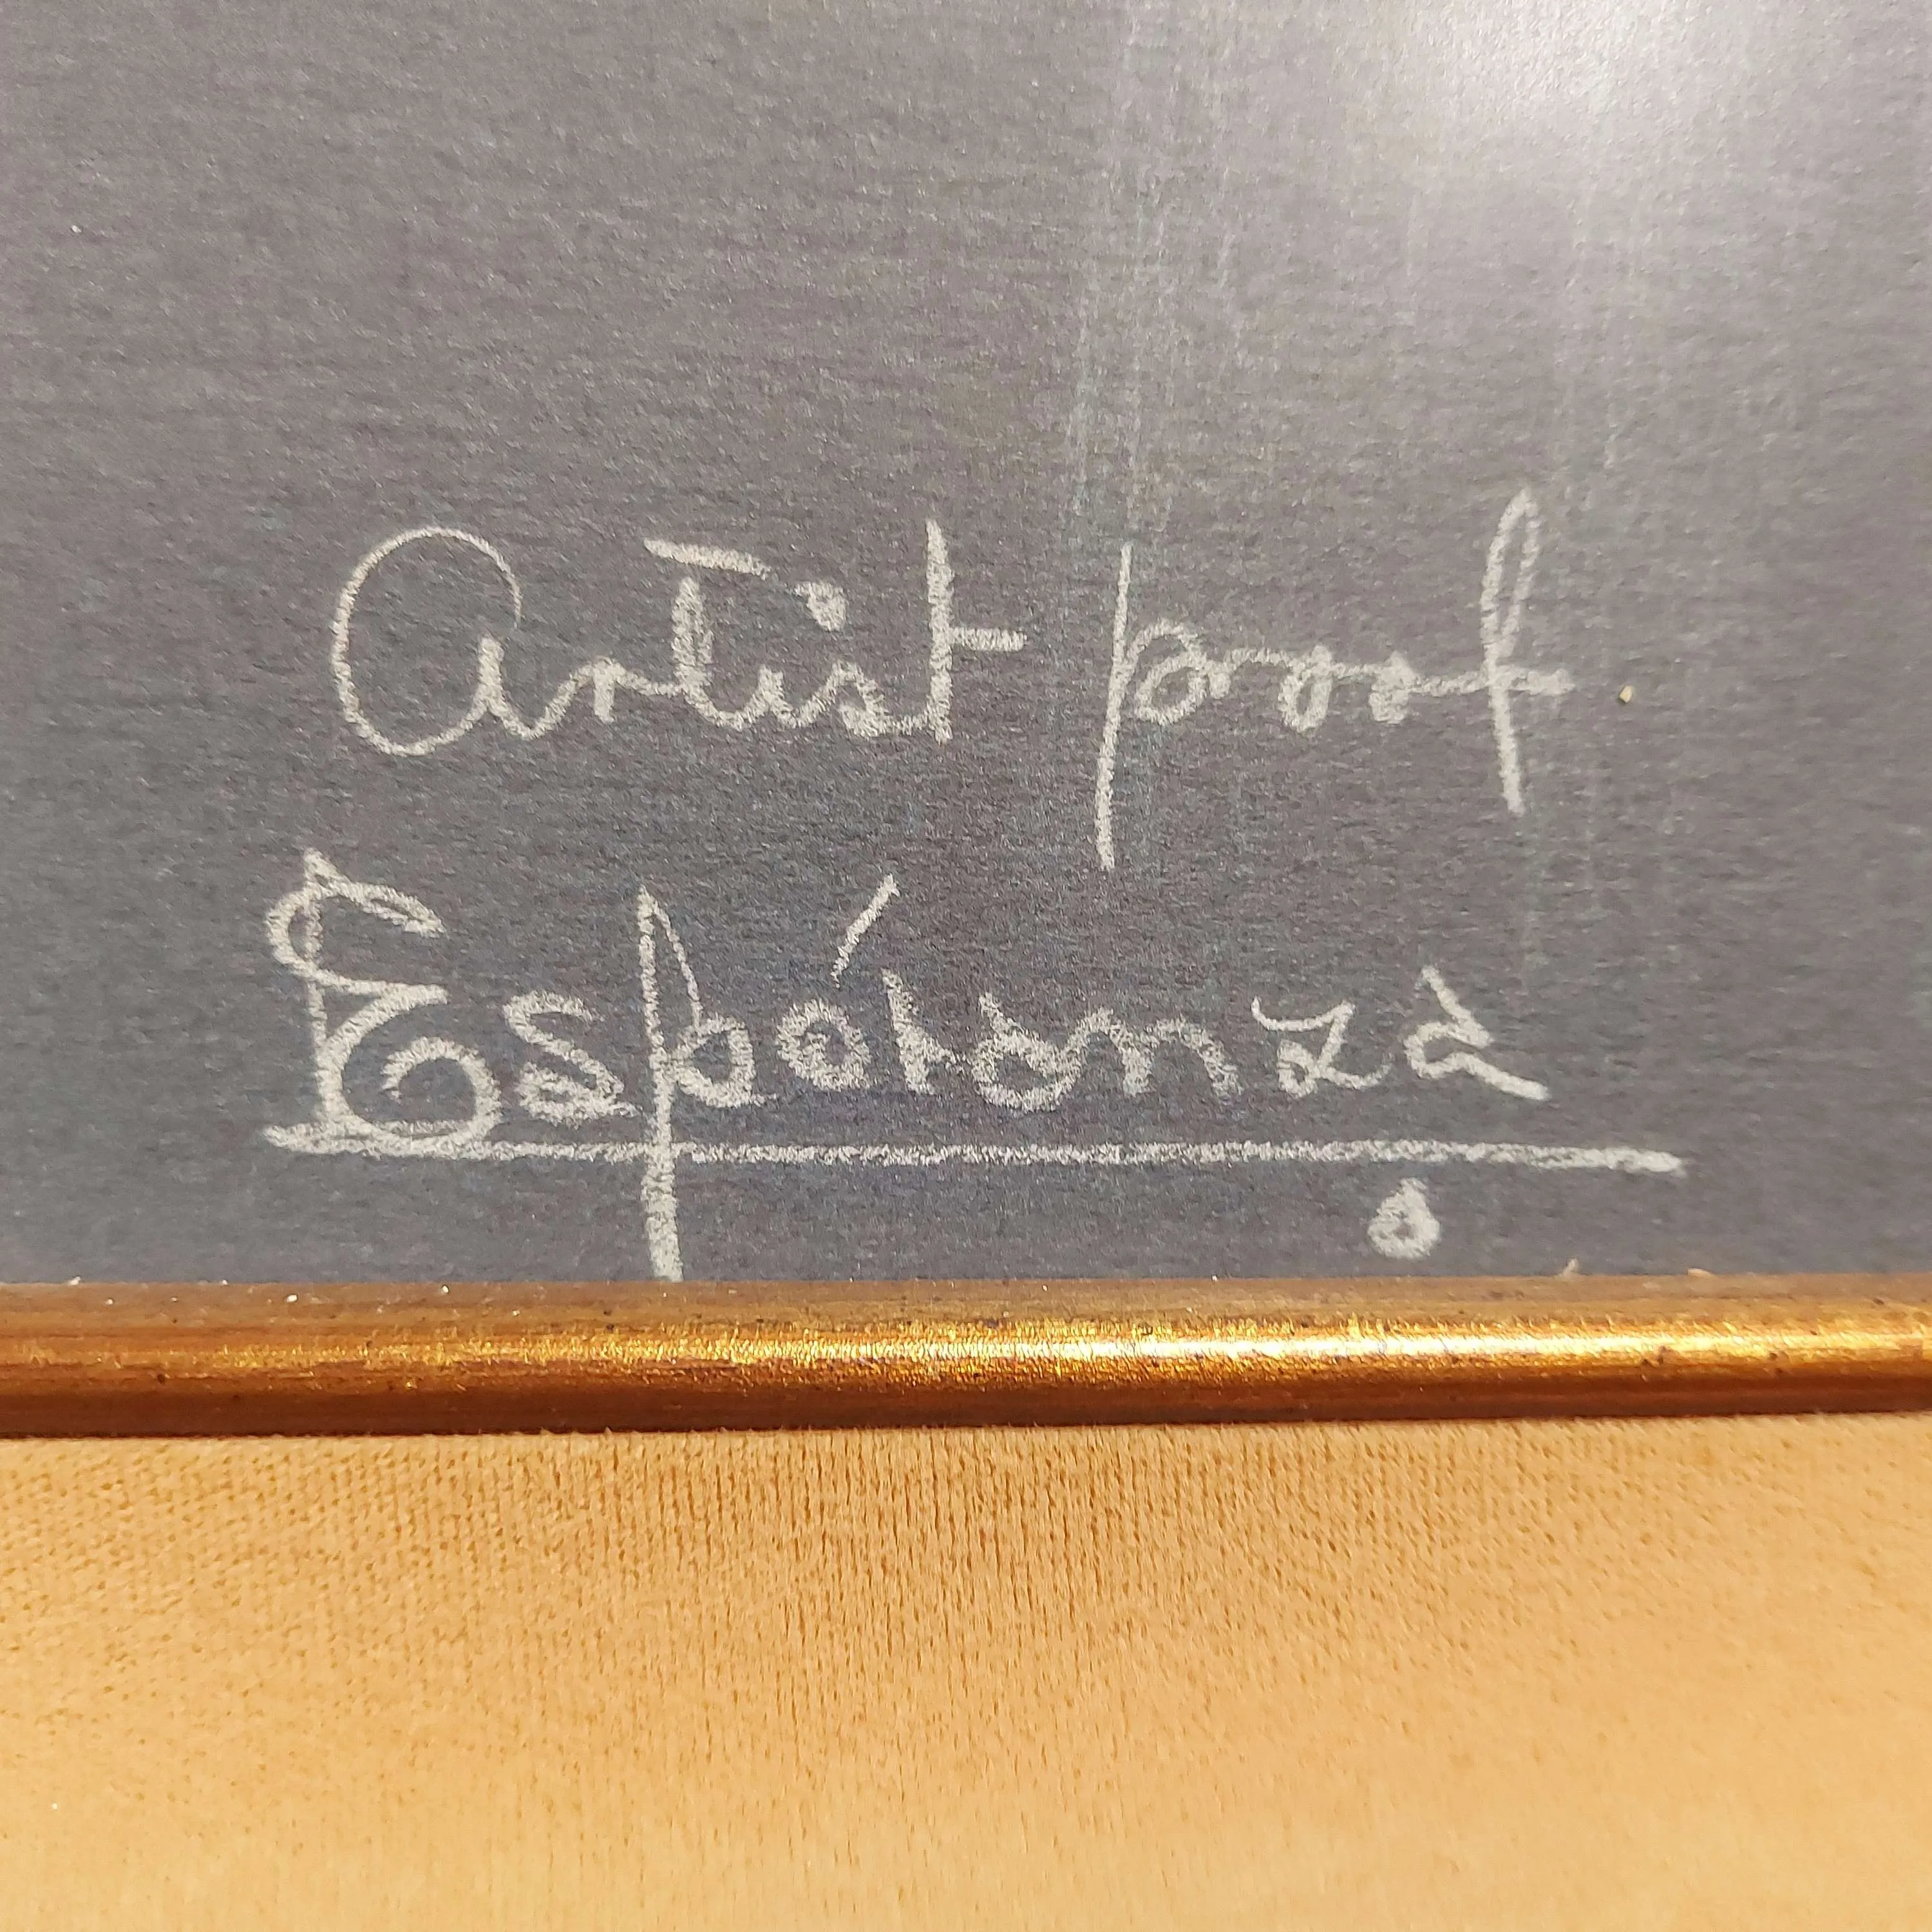 Artist proof
Espéranza